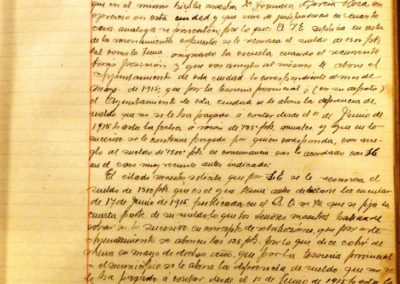 que en el mismo Sevilla maestra D.ª Fernanda García Pérez, en
ejercicio en esta ciudad y que sirve de jurisprudencia en cuanto
casos análogos se presenten; por lo que a V.E. suplica en vista
de lo anteriormente expuesto se le reconozca el sueldo de 1500 pts.
tal como lo tenía asignado la escuela cuando el recurrente
tomó posesión y que con arreglo al mismo le abone el
Ayuntamiento de esta ciudad lo correspondiente al mes de
mayo de 1915, que por la Tesorería provincial ó (en su defecto)
el Ayuntamiento de esta ciudad se le abone la diferencia de
sueldo que no se le ha pagado a contar desde el 1º de Junio de
1915 hasta la fecha á razón de 785 pts. anuales y que en lo
sucesivo se le continúe pagando por quien corresponda, con arre-
glo al sueldo de 1500 pts. en consonancia con lo acordado
en el caso muy reciente antes indicado.
El citado maestro solicita que por se le reconozca el
sueldo de 1500 pts. que es el que tenía antes de la circular
de 17 de Junio de 1915, publicada en el B.O. nº en que se fija la
cuarta parte de su sueldo lo que los señores maestros habían de
cobrar en lo sucesivo en concepto de retribuciones, que por este
Ayuntamiento se abonen las 125 pts. por lo que dejó de cobrar de
menos en mayo de dicho año, que por la Tesorería provincial
ó municipio se le abone la diferencia de sueldo que no se
le ha pagado á contar desde el 1º de Junio de 1915 hasta la